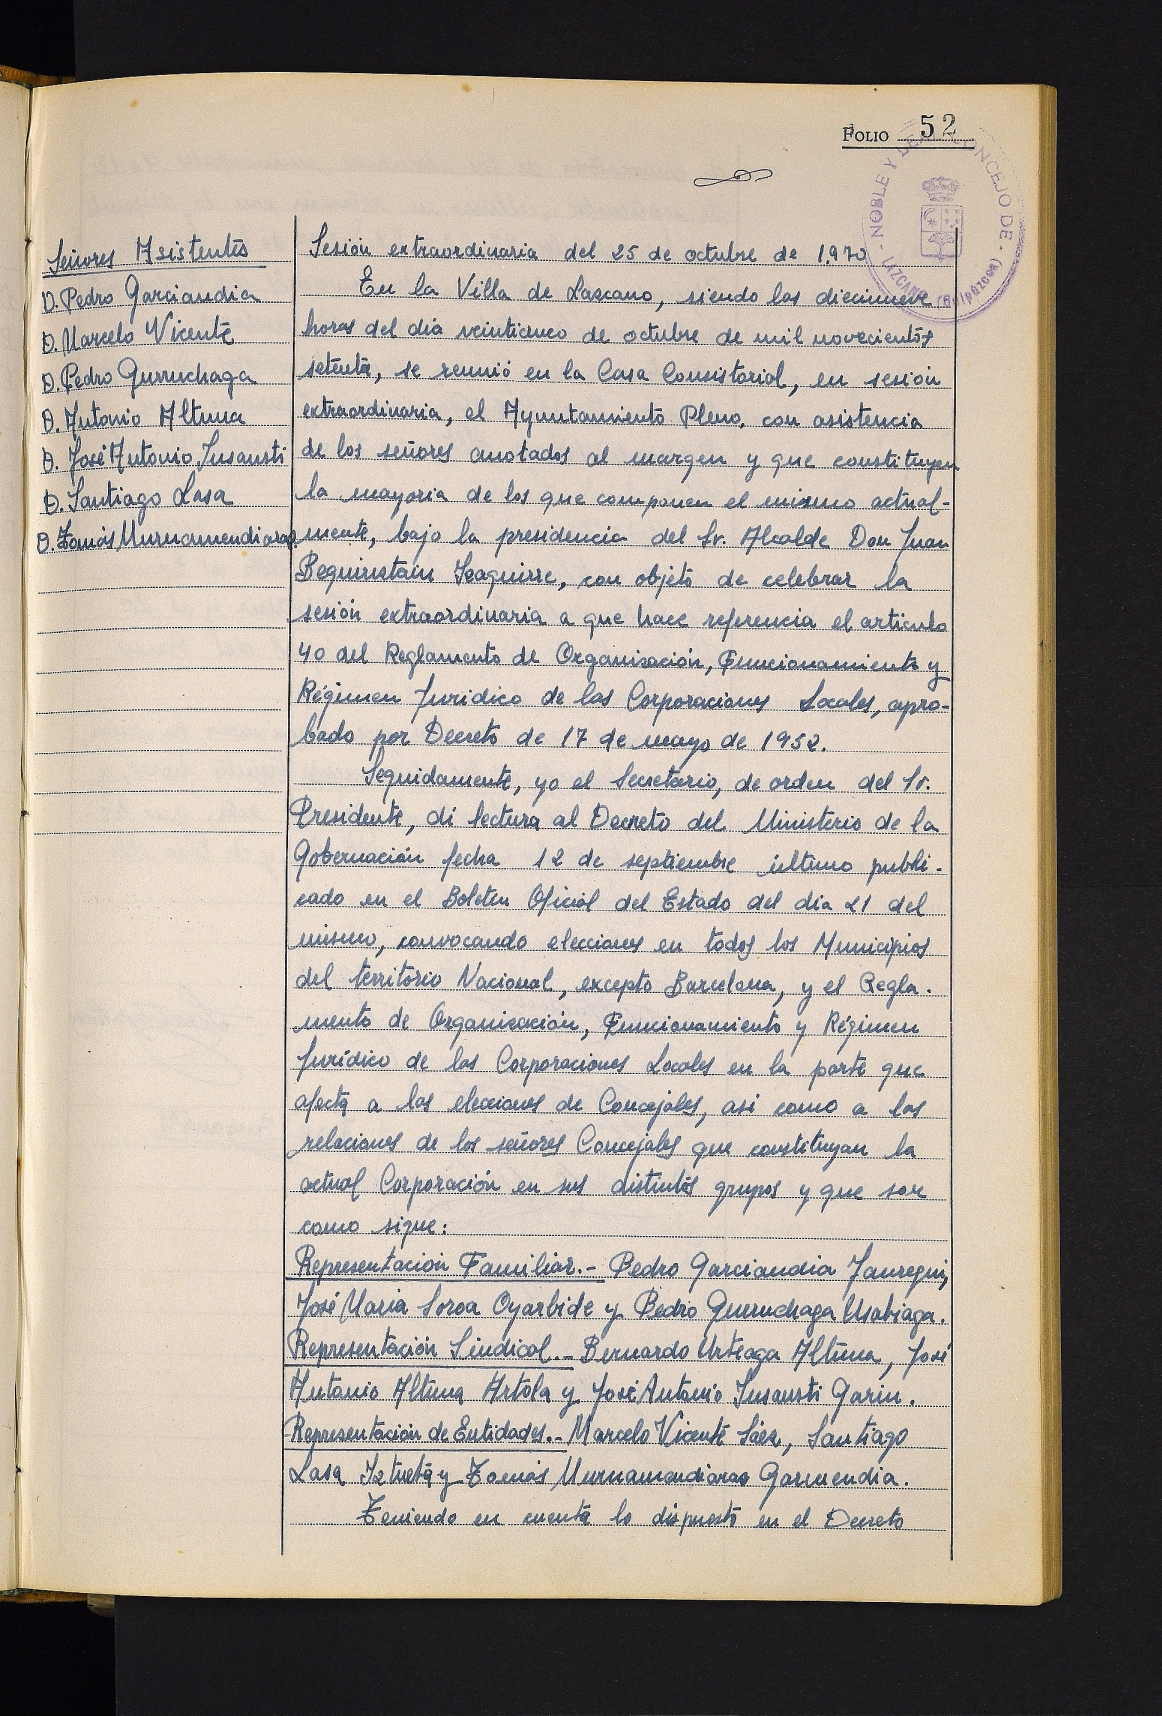 Folio 52
NOBLE Y LEAL CONCEJO DE
LAZCANO (Guipúzcoa)
Señores Asistentes
D. Pedro Garciandia
D. Marcelo Vicente
D. Pedro Gurruchaga
D. Antonio Altuna
D. José Antonio Insausti
D. Santiago Lasa
D. Tomás Murnamendiaraz
Sesión extraordinaria del 25 de octubre de 1.970
En la Villa de Lazcano, siendo las diecinueve
horas del día veinticinco de octubre de mil novecientos
setenta, se reunió en la Casa Consistorial, en sesión
extraordinaria, el Ayuntamiento Pleno, con asistencia
de los señores anotados al margen y que constituyen
la mayoria de los que componen el mismo actual-
mente, bajo la presidencia del Sr. Alcalde Don Juan
Beguiristain, con objeto de celebrar la
sesión extraordinaria a que hace referencia el articulo
40 del Reglamento de Organización, Funcionamiento y
Régimen Jurídico de las Corporaciones Locales, apro-
bado por Decreto de 17 de mayo de 1952.
Seguidamente, yo el Secretario, de orden del Sr.
Presidente, di lectura al Decreto del Ministerio de la
Gobernación fecha 12 de septiembre último publi-
cado en el Boletin Oficial del Estado del dia 21 del
mismo, convocando elecciones en todos los Municipios
del territorio Nacional, excepto Barcelona, y el Regla-
mento de Organización, Funcionamiento y Régimen
Jurídico de las Corporaciones Locales en la parte que
afecta a las elecciones de Concejales, asi como a las
relaciones de los señores Concejales que constituyan la
actual Corporación en sus distintos grupos y que son
como sigue:
Representación Familiar.- Pedro Garciandia Jauregui,
José Maria Soroa Oyarbide y Pedro Gurruchaga Usabiaga.
Representación Sindical.- Bernardo Urteaga Altuna, José
Antonio Altuna Artola y José Antonio Insausti Garin.
Representación de Entidades.- Marcelo Vicente Sáez, Santiago
Lasa Iztueta y Tomás Murnamendiaraz Garmendia.
Teniendo en cuenta lo dispuesto en el Decreto